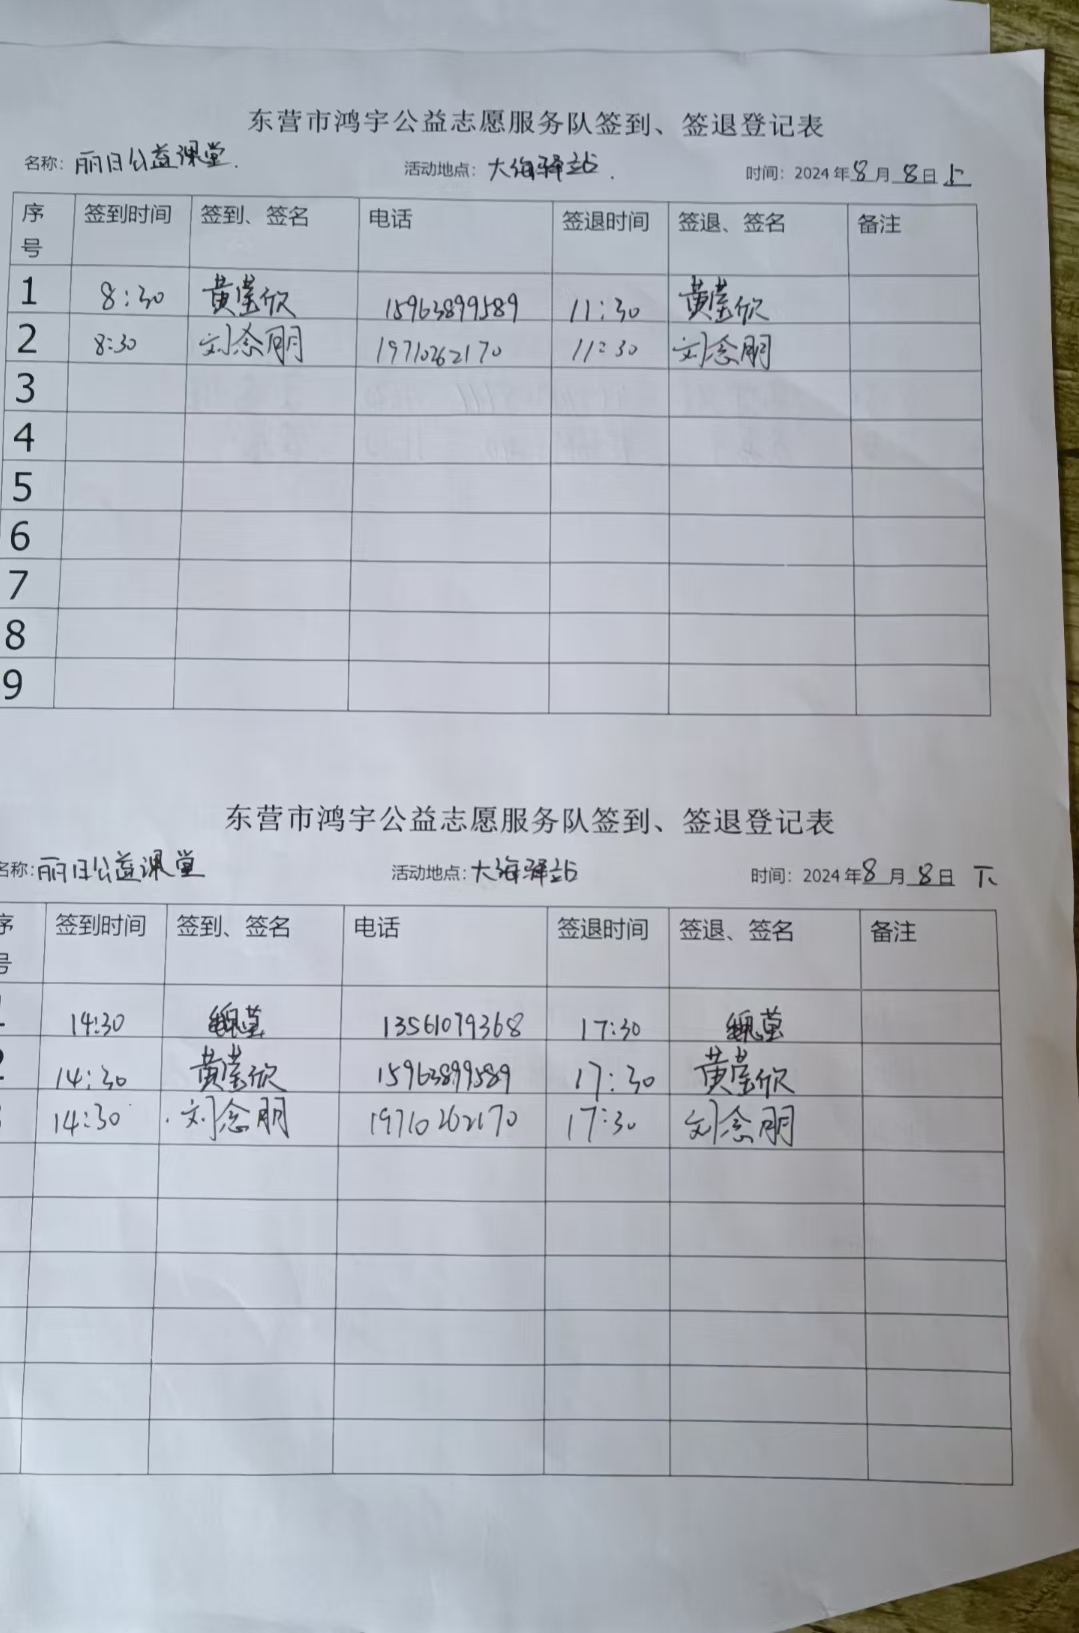 东营市鸿宇公益志愿服务队签到、签退登记表
名称：丽日公益课堂. 活动地点：大海驿站. 时间：2024年8月8日上
序号 签到时间 签到、签名 电话 签退时间 签退、签名 备注
1 8:30 黄莹欣 15963899589 11:30 黄莹欣
2 8:30 刘念朋 19710262170 11:30 刘念朋
3
4
5
6
7
8
9
东营市鸿宇公益志愿服务队签到、签退登记表
名称：丽日公益课堂 活动地点：大海驿站 时间：2024年8月8日 下
序号 签到时间 签到、签名 电话 签退时间 签退、签名 备注
14:30 13561079368 17:30
2 14:30 黄莹欣 15963899589 17:30 黄莹欣
14:30 刘念朋 19710262170 17:30 刘念朋